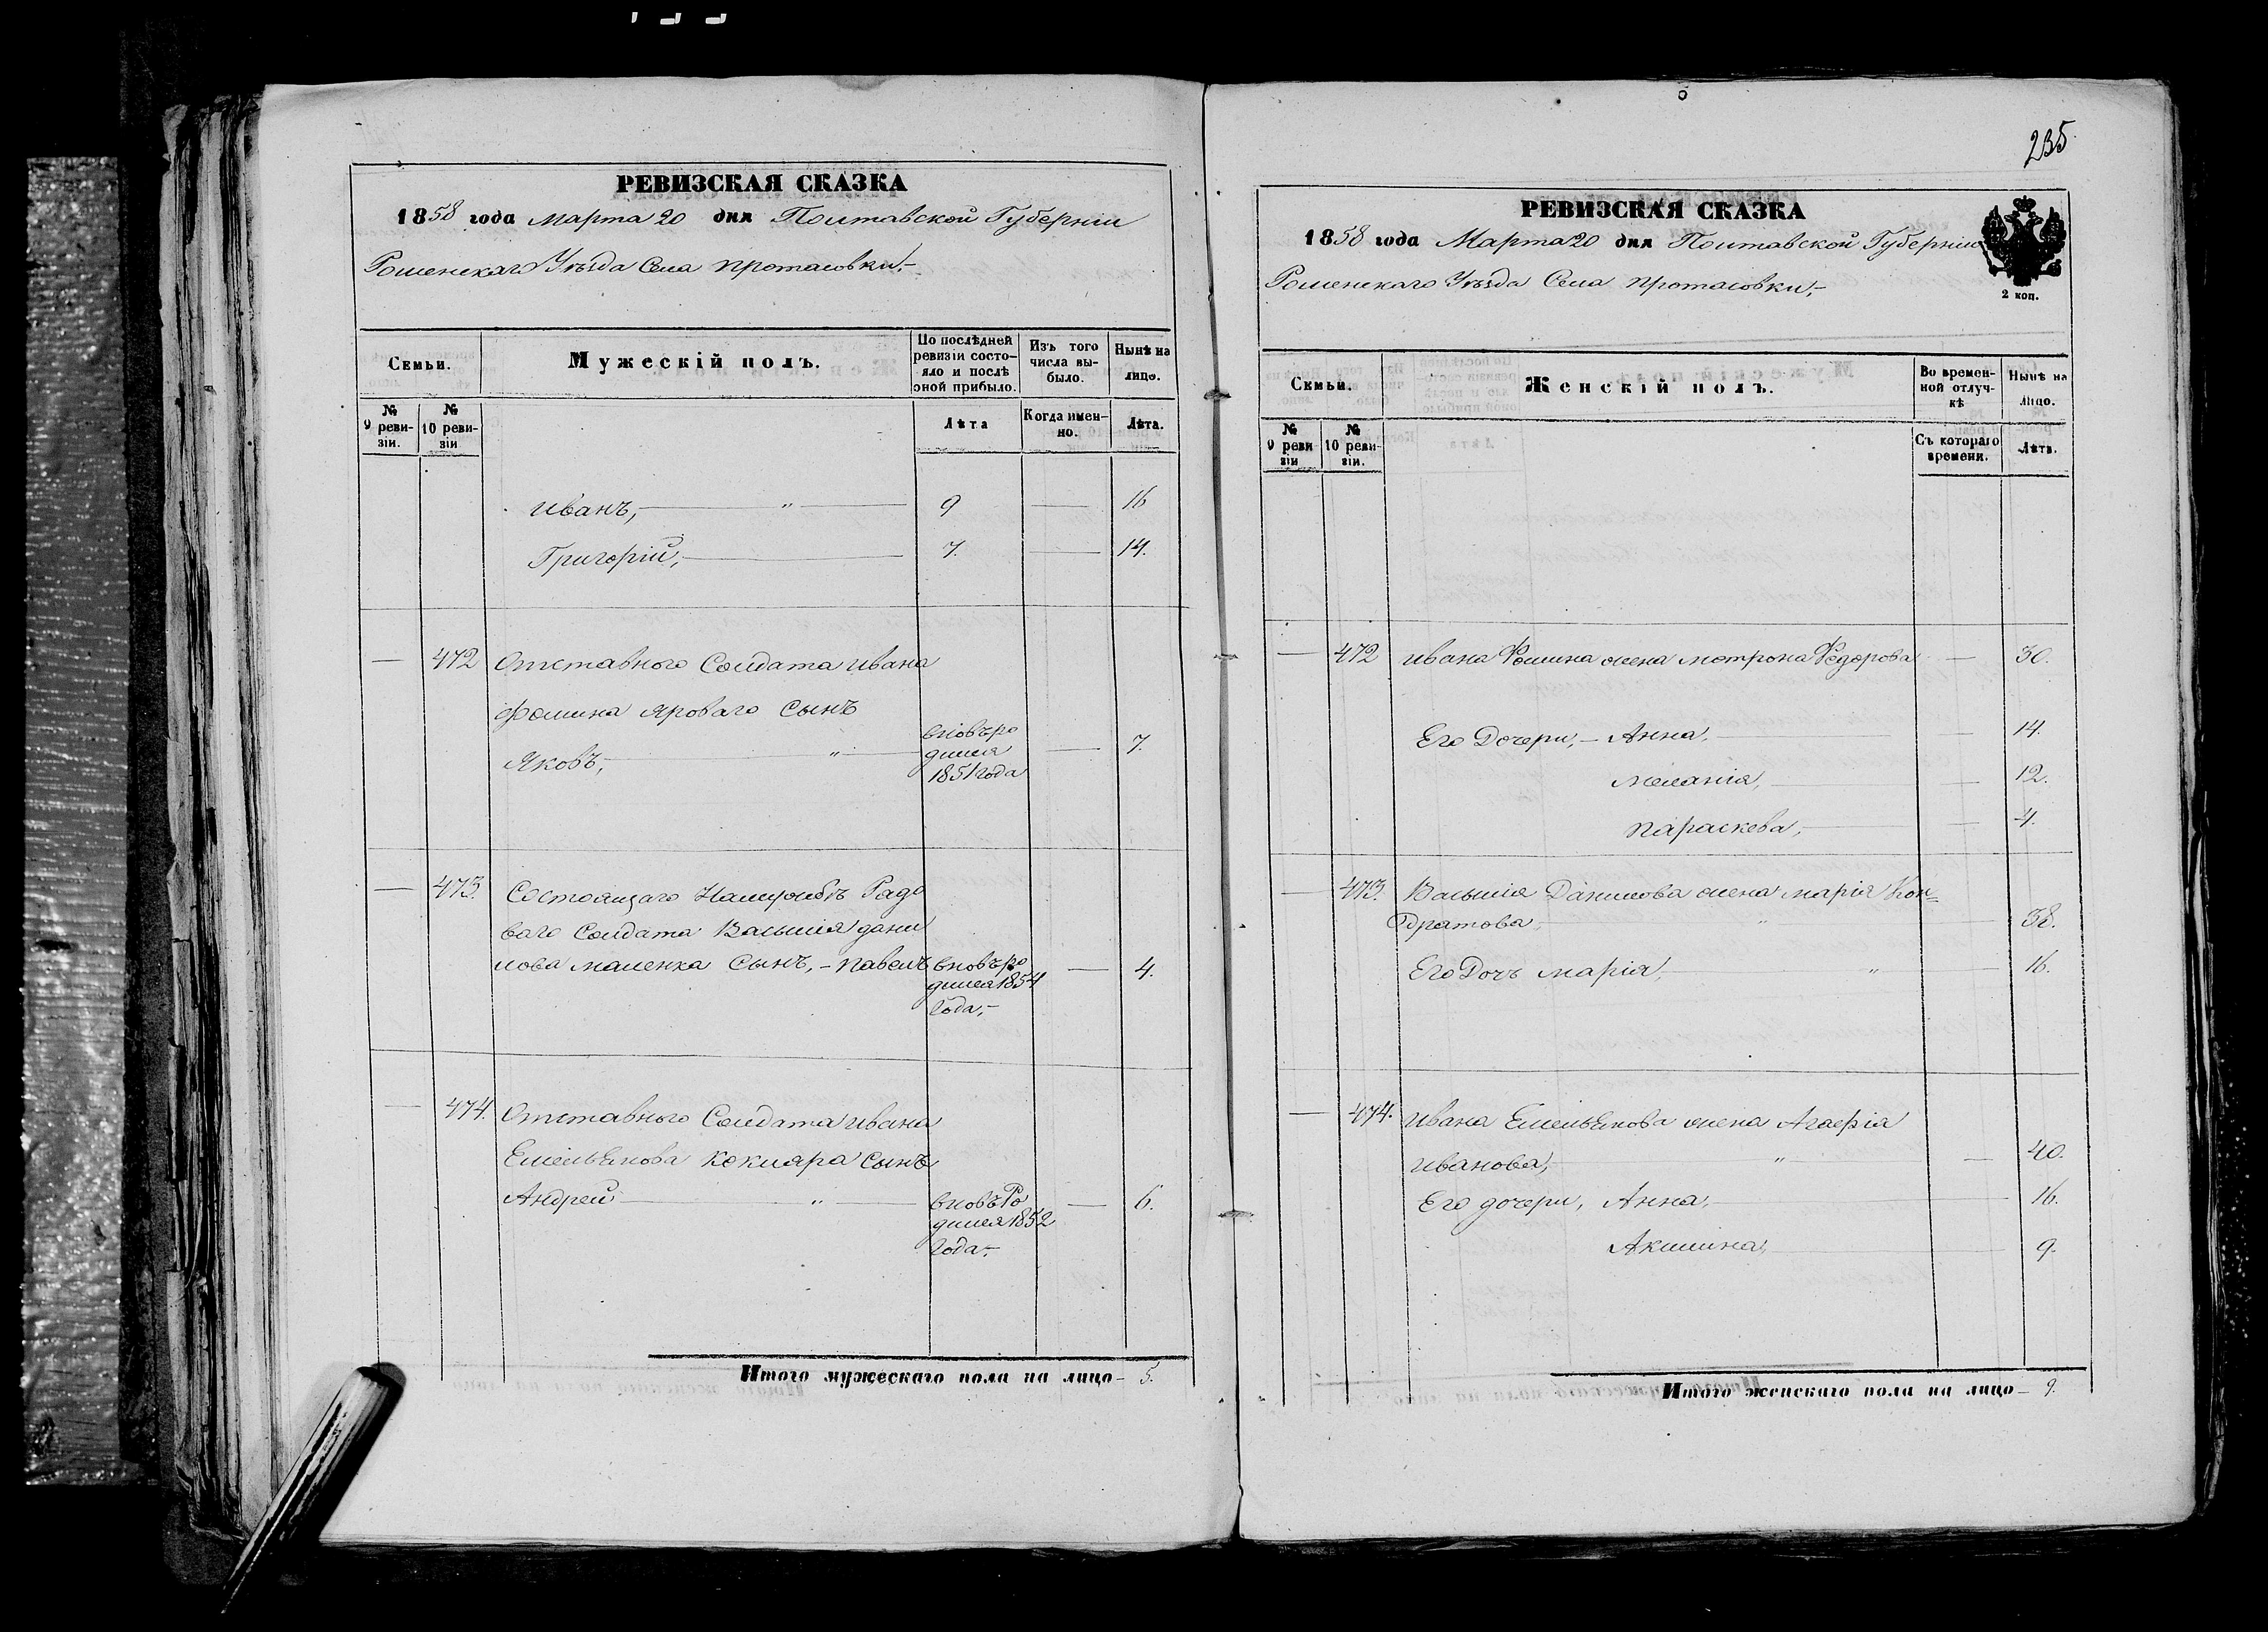 235
РЕВИЗСКАЯ СКАЗКА
1858 года Марта 20 дня Полтавской Губерніи
Роменскаго Уѣзда Села Протасовки,-
Семьи.
Мужескій полъ.
По послѣдней ревизіи состояло и послѣ оной прибыло.
Изъ того числа выбыло.
Нынѣ на лицо.
№ 9 ревизіи.
№ 10 ревизіи
Лѣта
Когда именно.
Лѣта.
Иванъ, — " — 9 — 16
Григорій, — 7. — 14.
— 472 Отставного Солдата Ивана
Фомина Яроваго Сынъ
Яковъ, — " — вновь родился 1851 года — 7.
— 473. Состоящаго Рядо
ваго Солдата Василія Дани
лова Маленка Сынъ, - Павелъ вновь ро
дился 1854 — 4.
Года,-
— 474. Отставного Солдата Ивана
Емельянова Кокляра Сынъ
Андрей — " — вновь Ро
дился 1852 — 6.
Года,-
Итого мужескаго пола на лицо - 5.
РЕВИЗСКАЯ СКАЗКА
1858 года Марта 20 дня Полтавской Губерніи
Роменскаго Уѣзда Села Протасовки,-
2 коп.
Семьи.
Женскій полъ.
Во временной отлучкѣ
Нынѣ на лицо.
№ 9 ревизіи
№ 10 ревизіи.
Съ котораго времени.
Лѣта.
— 472 Ивана Фомина жена Мотрона Федорова — 30.
Его Дочери, - Анна, — 14.
Меланія, — 12.
Параскева, — 4.
— 473. Василія Данилова жена Марія Кон-
дратова, — " — 38.
Его Дочь Марія, — " — 16.
— 474. Ивана Емельянова жена Агафія
Иванова, — " — 40.
Его дочери, Анна, — 16.
Акилина, — 9.
Итого женскаго пола на лицо - 9.